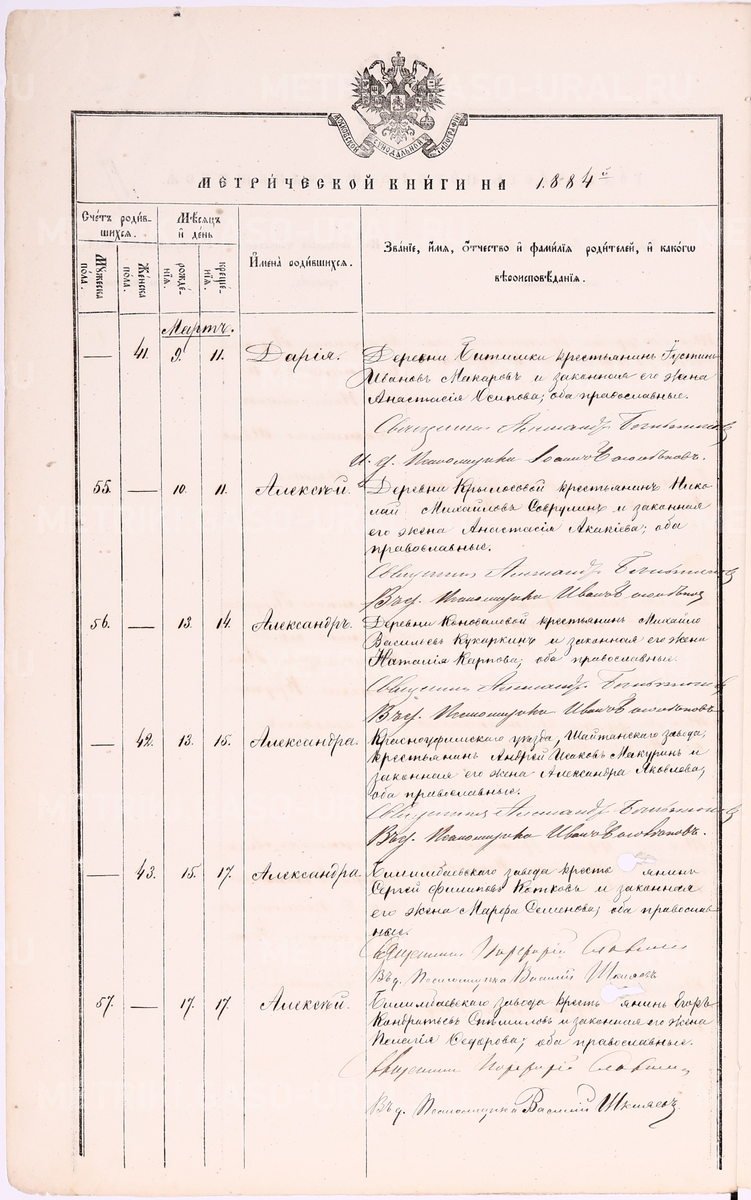 МОСКОВСКОЙ СѴНОДАЛЬНОЙ ТИПОГРАФІИ
МЕТРИ́ЧЕСКОЙ КНИ́ГИ НА 1884й
Сче́тъ роди́вшихся.
Мѣ́сяцъ и҆ де́нь
И҆мена̀ роди́вшихся.
Зва́нїе, и҆́мя, ѻ҆́тчество и҆ фами́лїя роди́телей, и҆ како́гѡ вѣроисповѣ́данїя.
Мꙋ́жеска по́ла.
Же́нска по́ла.
рожде́нїя.
креще́нїя.
Мартъ.
— 41. 9. 11. Дарія. Деревни Битимки крестьянинъ Іустинъ
Ивановъ Макаровъ и законная его жена
Анастасія Осипова; оба православные.
Священникъ Александръ
И. д. Псаломщика Іоаннъ
55. — 10. 11. Алексѣй. Деревни Крылосовой крестьянинъ Нико-
лай Михайловъ и законная
его жена Анастасія Акакіева; оба
православные.
Священникъ Александръ
Въ д. Псаломщика Иванъ
56. — 13. 14. Александръ. Деревни Коноваловой крестьянинъ Михайло
Васильевъ Кухаркинъ и законная его жена
Наталія Карпова; оба православные.
Священникъ Александръ
Въ д. Псаломщика Иванъ
— 42. 13. 15. Александра. Красноуфимскаго уѣзда, Шайтанскаго завода,
крестьянинъ Андрей Исаковъ Макуринъ и
законная его жена Александра Яковлева;
оба православные.
Священникъ Александръ
Въ д. Псаломщика Иванъ
— 43. 15. 17. Александра. Билимбаевскаго завода крестьянинъ
Сергей Филиповъ Котковъ и законная
его жена Марефа Семенова; оба православ-
ные.
Священникъ Порфирій Славнинъ
Въ д. Псаломщика Василій
57. — 17. 17. Алексѣй. Билимбаевскаго завода крестьянинъ Егоръ
Кондратьевъ и законная его жена
Пелагія Сидорова; оба православные.
Священникъ Порфирій Славнинъ
Въ д. Псаломщика Василій